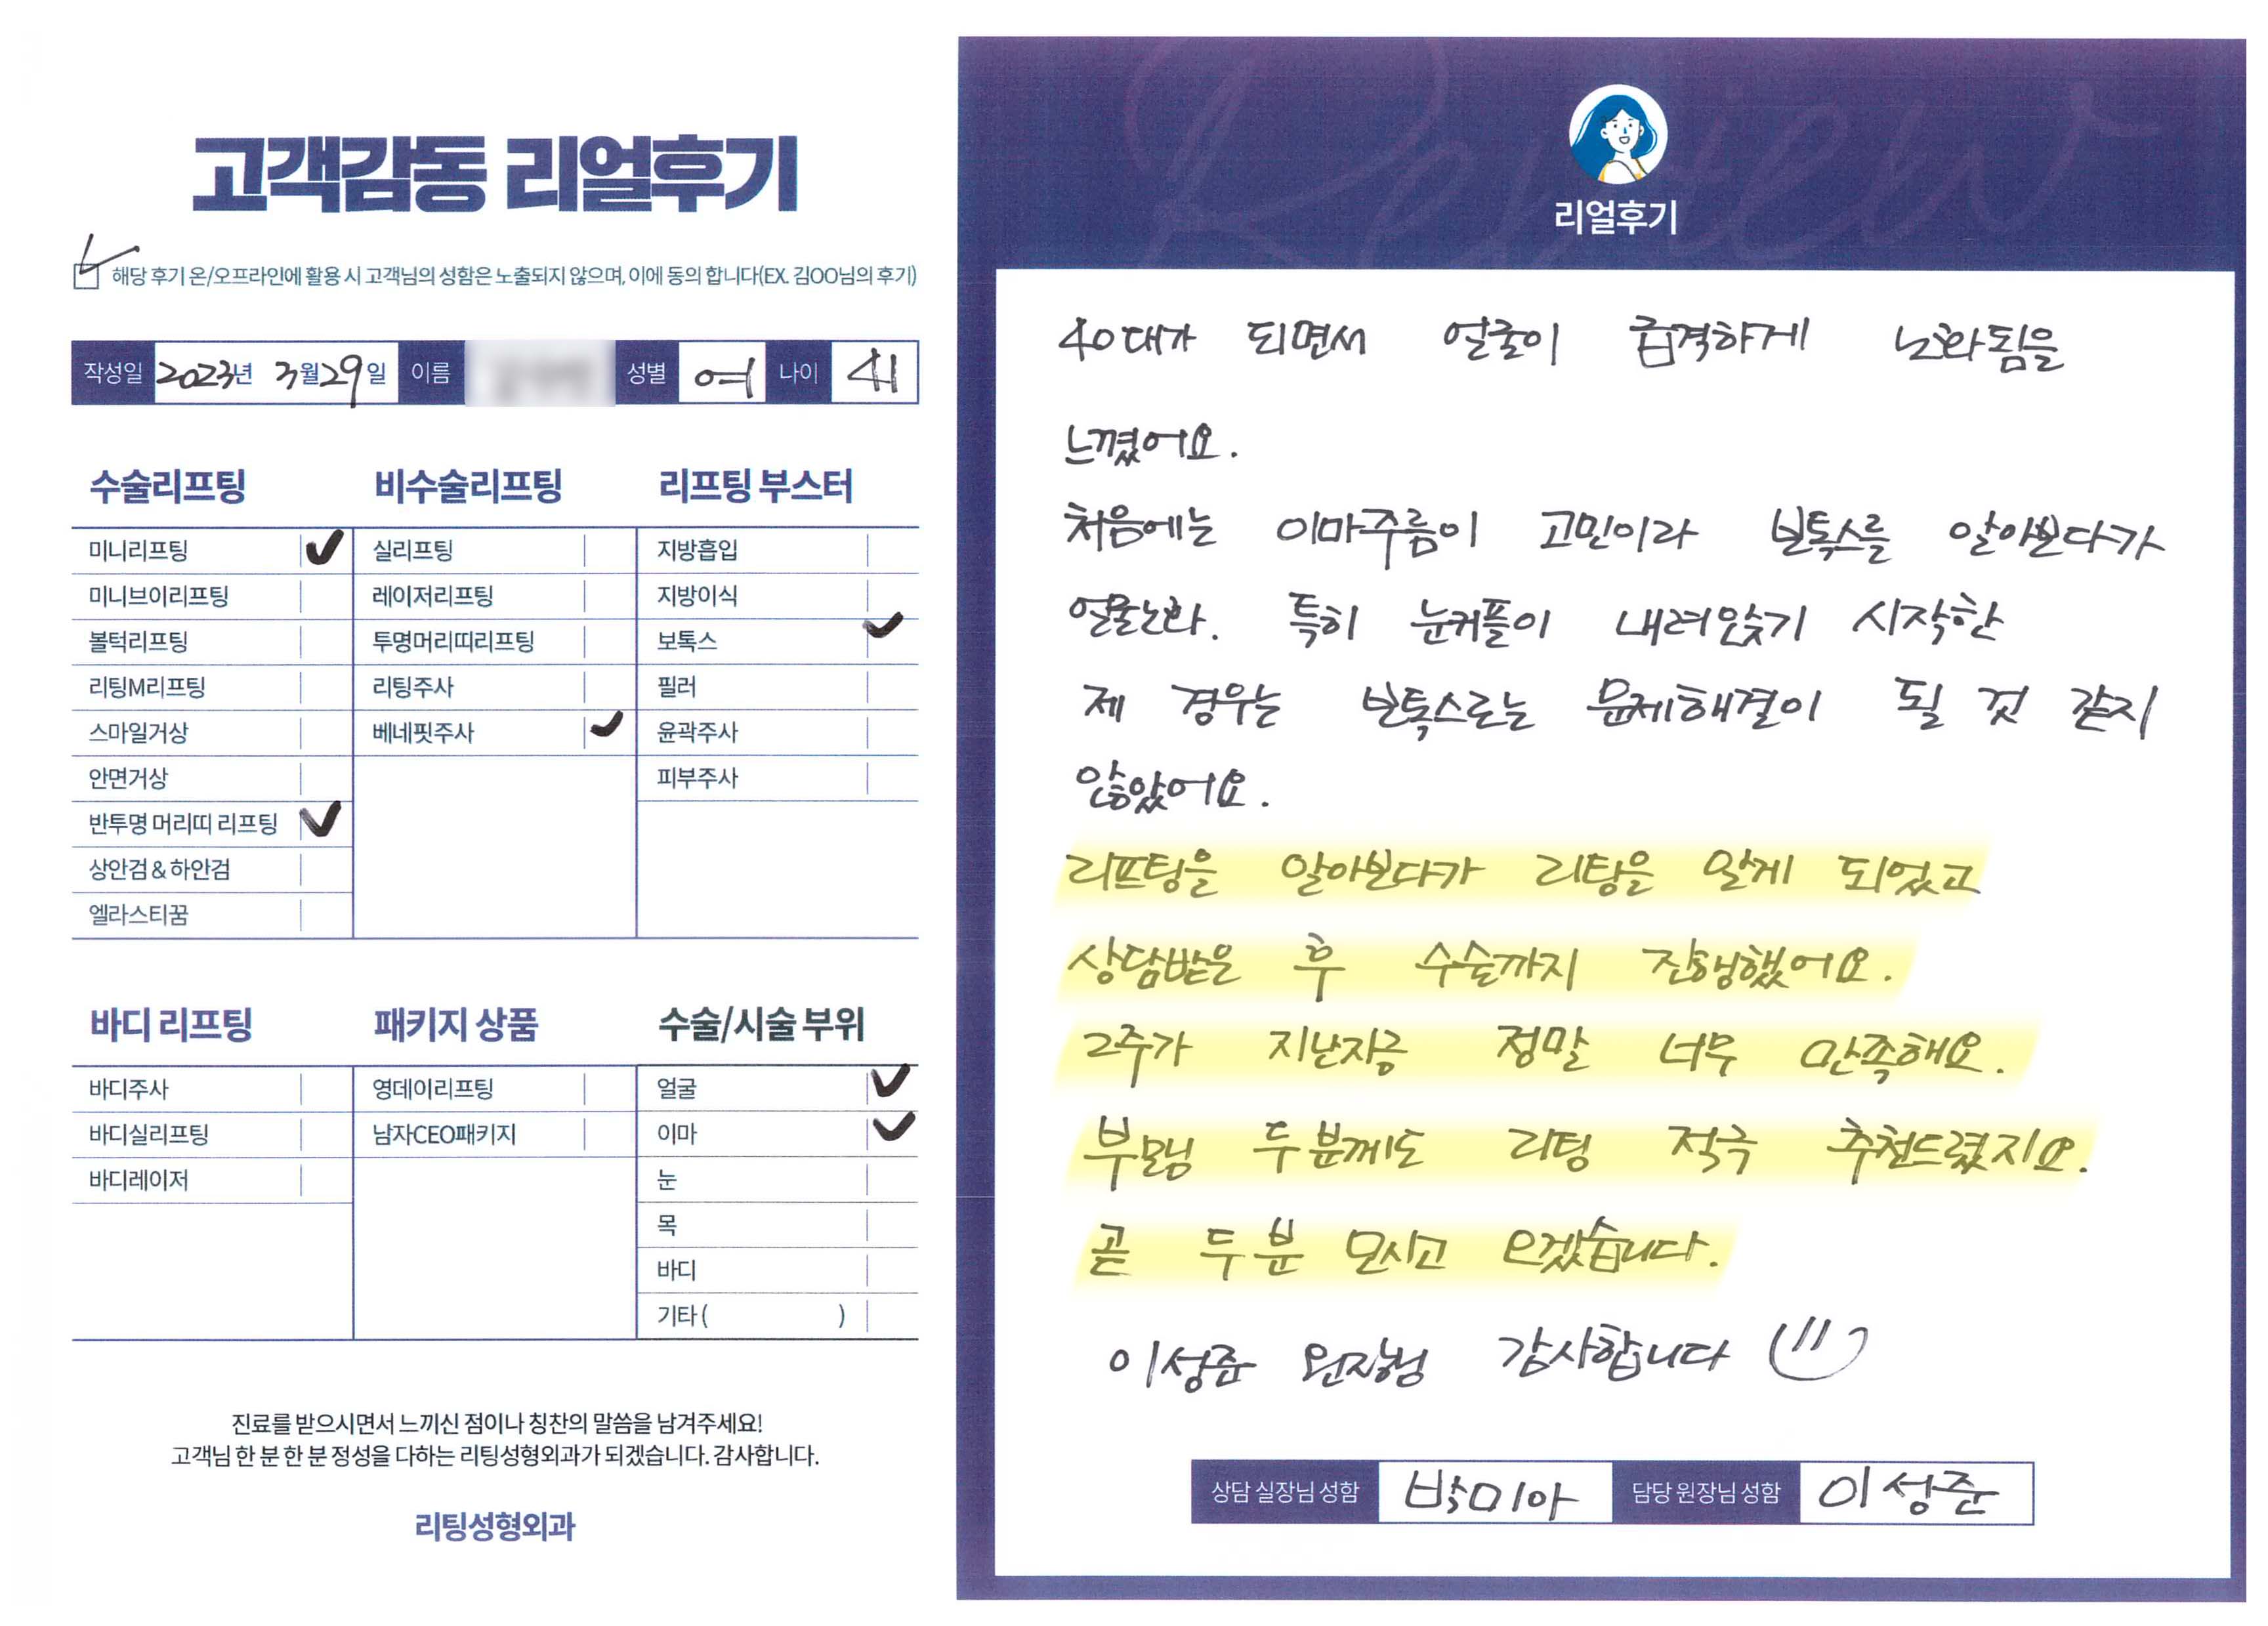 고객감동 리얼후기
해당 후기 온/오프라인에 활용 시 고객님의 성함은 노출되지 않으며, 이에 동의 합니다(EX. 김OO님의 후기)
작성일 2023년 3월 29일 이름 성별 여 나이 41
수술리프팅
미니리프팅
미니브이리프팅
볼턱리프팅
리팅M리프팅
스마일거상
안면거상
반투명 머리띠 리프팅
상안검 & 하안검
엘라스티꿈
비수술리프팅
실리프팅
레이저리프팅
투명머리띠리프팅
리팅주사
베네핏주사
리프팅 부스터
지방흡입
지방이식
보톡스
필러
윤곽주사
피부주사
바디 리프팅
바디주사
바디실리프팅
바디레이저
패키지 상품
영데이리프팅
남자CEO패키지
수술/시술 부위
얼굴
이마
눈
목
바디
기타 ( )
진료를 받으시면서 느끼신 점이나 칭찬의 말씀을 남겨주세요!
고객님 한 분 한 분 정성을 다하는 리팅성형외과가 되겠습니다. 감사합니다.
리팅성형외과
Review
리얼후기
40대가 되면서 얼굴이 급격하게 노화됨을
느꼈어요.
처음에는 이마주름이 고민이라 보톡스를 알아보다가
얼굴노화. 특히 눈꺼플이 내려앉기 시작한
제 경우는 보톡스로는 문제해결이 될 것 같지
않았어요.
리프팅을 알아보다가 리팅을 알게 되었고
상담받은 후 수술까지 진행했어요.
2주가 지난지금 정말 너무 만족해요.
부모님 두분께도 리팅 적극 추천드렸지요.
곧 두분 모시고 오겠습니다.
이성준 원장님 감사합니다
상담 실장님 성함 박미아 담당 원장님 성함 이성준